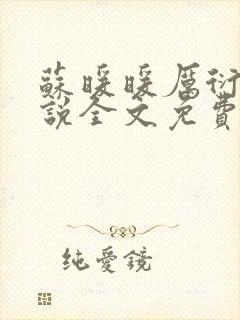 蘇暖暖厲衍
說全文免費
純愛鏡